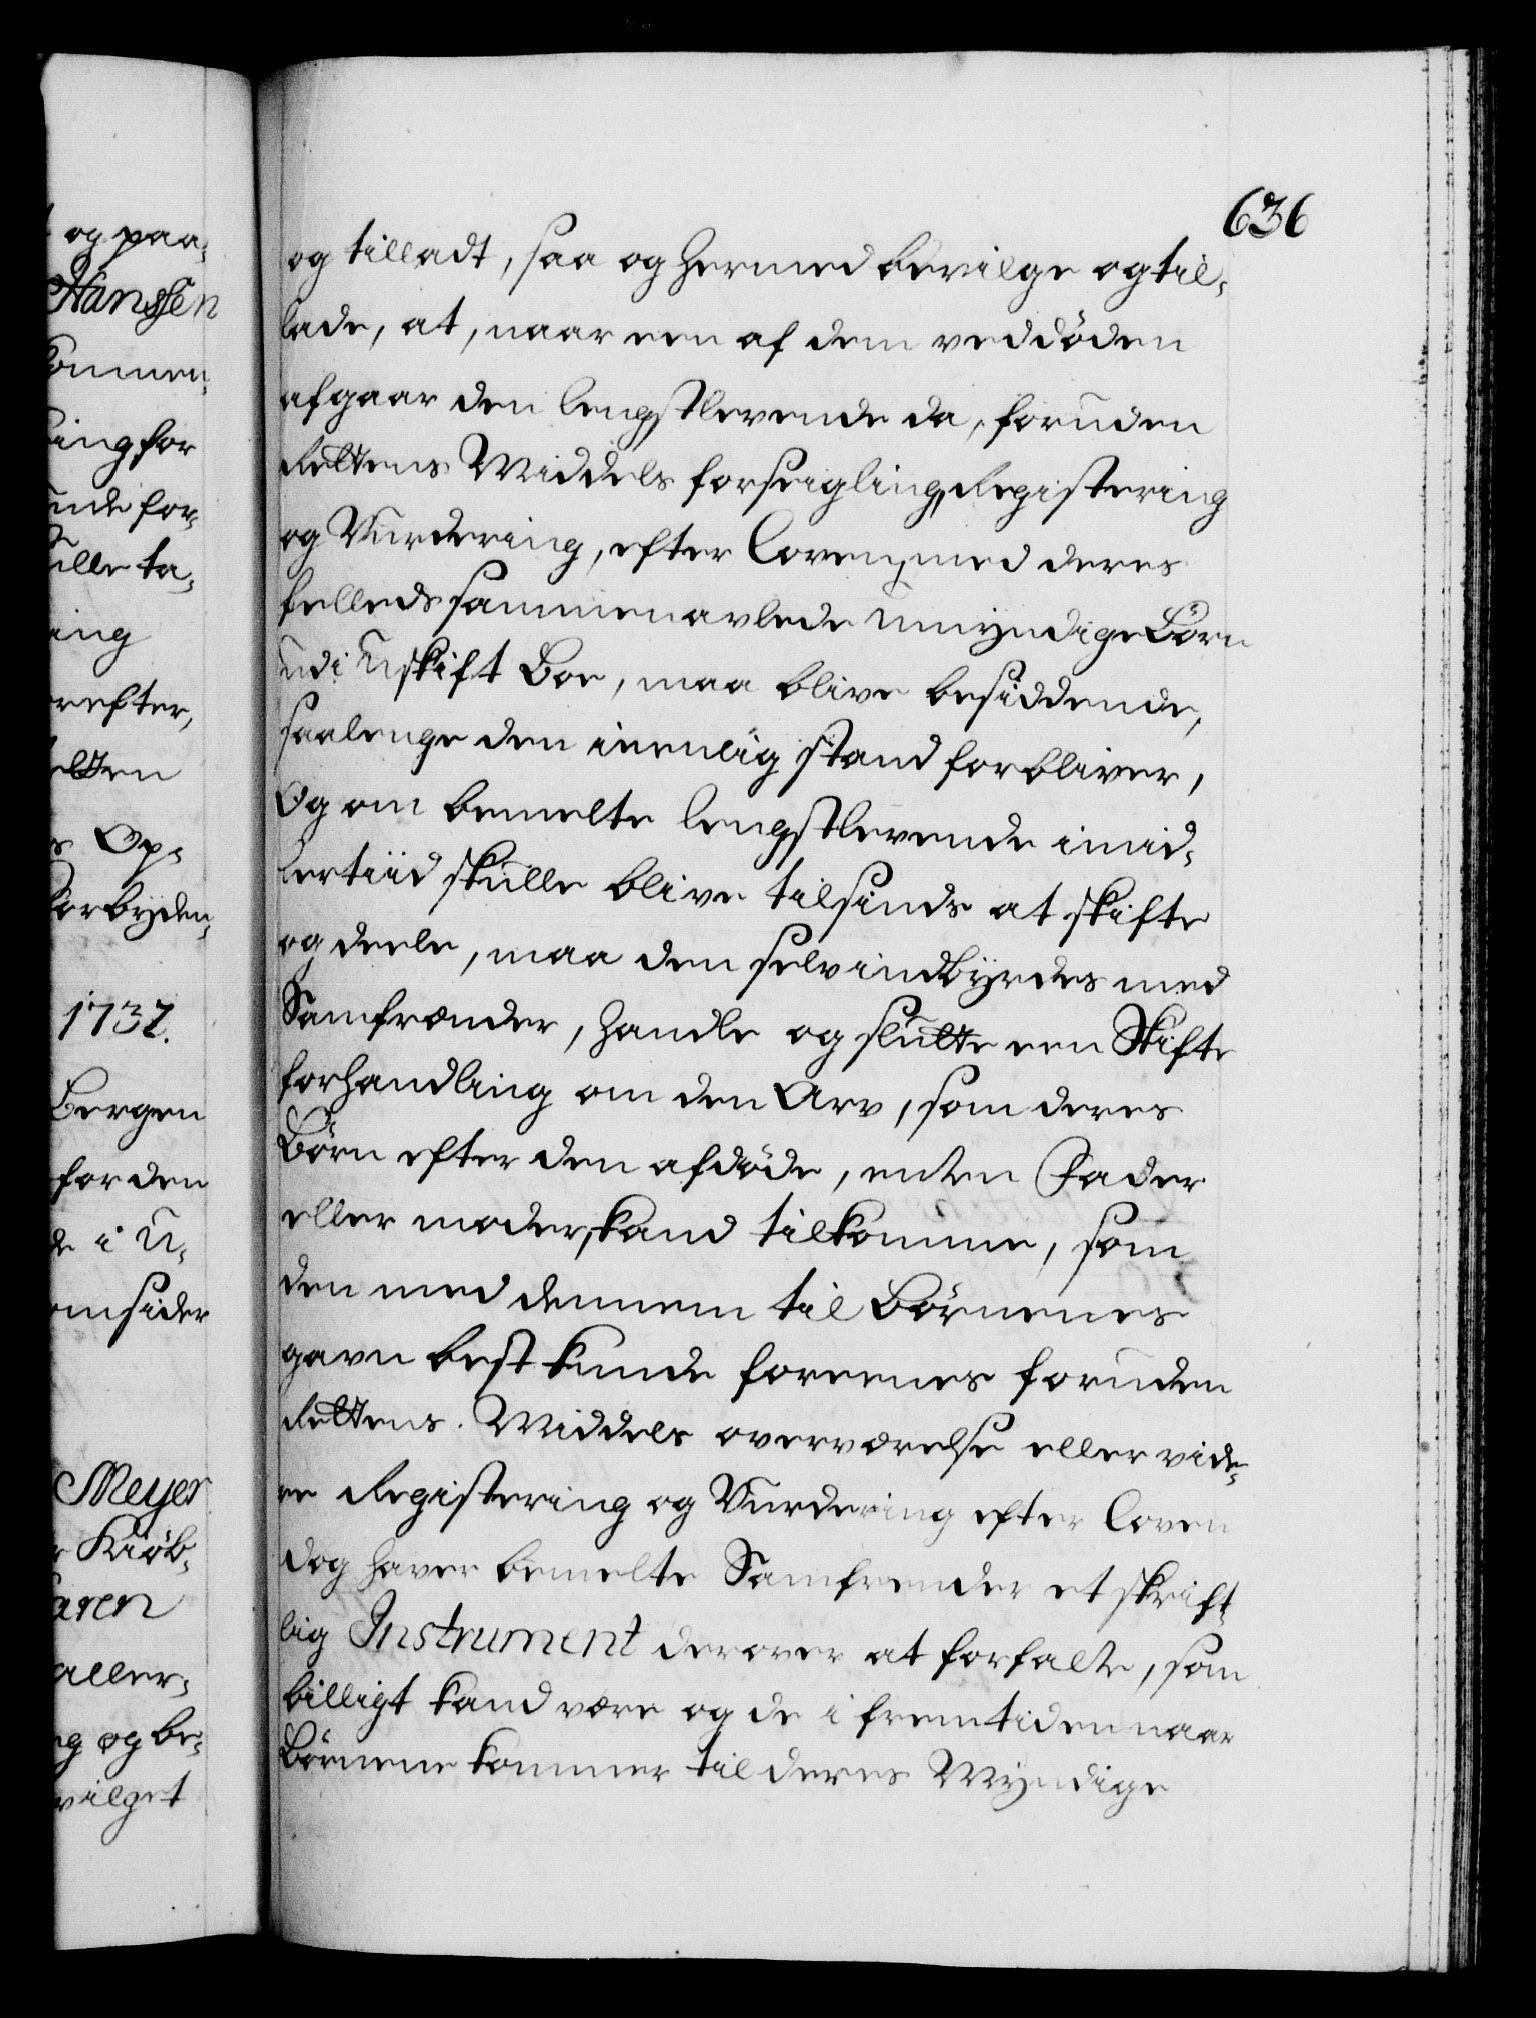 636
og tilladt, saa og hermed bevilge og til-
lade, at, naar een af dem ved døden
afgaar den lengstlevende da, foruden
Rettens Middels forseigling, Registering
og Vurdering, efter Loven, med deres
felleds sammenavlede umyndige Børn
udi uskift Boe, maa blive besiddende,
saalenge den i eenlig stand forbliver,
Og om bemelte lengstlevende imid-
lertiid skulle blive tilsinds at skifte
og deele, maa den selv indbyrdes med
Samfrænder, handle og slutte een Skifte
forhandling om den Arv, som deres
Børn efter den afdøde, enten Fader
eller moder, kand tilkomme, som
den med dennem til Børnenes
gavn best kunde foreenes foruden
Rettens Middels overværelse eller vide-
re Registering og Vurdering efter Loven
dog haver bemelte Samfrender et skrift-
lig Instrument derover at forfatte, som
billigt kand være og de i fremtiden naar
Børnene kommer til deres Myndige
og paa-
Hanssen
kommen-
ing for
unde for-
ulle ta-
ing
refter,
etten
s Op-
forbyden-
1737.
Bergen
for den
de i U-
omsider
Meyer
r Kiøb-
aren
aller-
ng og be-
vilget